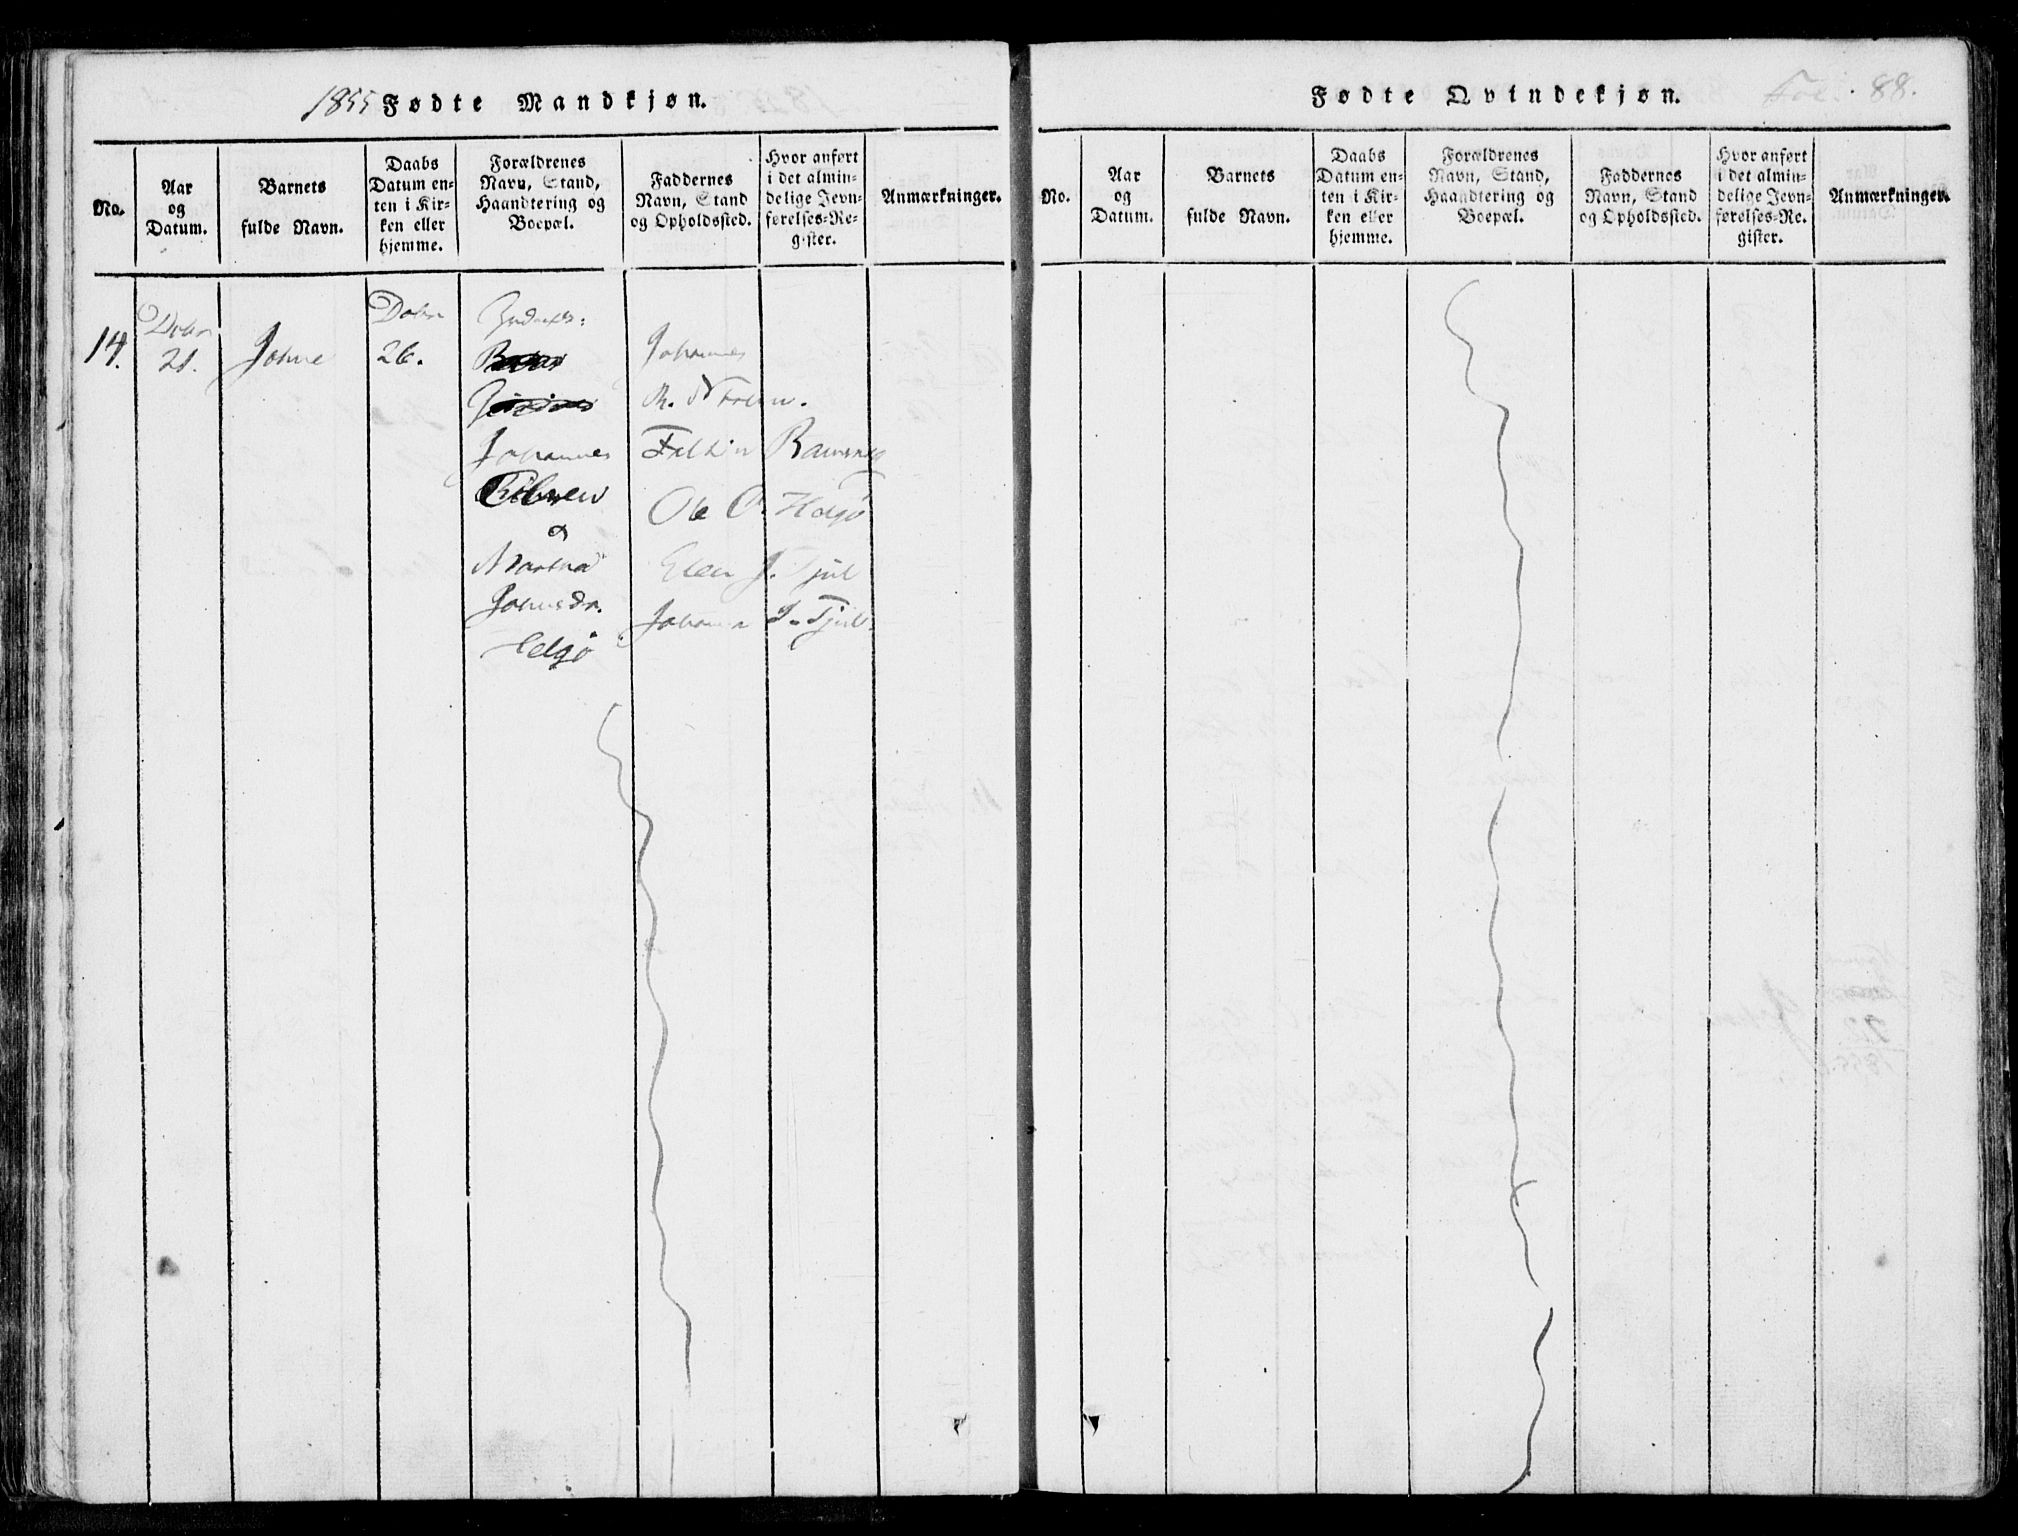 1855 Fødte Mandkjøn.
No.
Aar
og
Datum.
Barnets
fulde Navn.
Daabs
Datum en-
ten i Kir-
ken eller
hjemme.
Forældrenes
Navn, Stand,
Haandtering og
Boepæl.
Faddernes
Navn, Stand
og Opholdssted.
Hvor anført
i det almin-
delige Jevn-
førelses-Re-
gister.
Anmærkninger.
14.
Debr
21.
Johne
Debr
26.
Johannes
&
Martha
Johnsdr.
Helgø
Johannes
Ramsnes
Ole O. Helgø
Elen J. Tjul
Johanna J. Tjul
Fødte Qvindekjøn.
Fol. 88.
No.
Aar
og
Datum.
Barnets
fulde Navn.
Daabs
Datum en-
ten i Kir-
ken eller
hjemme.
Forældrenes
Navn, Stand,
Haandtering og
Boepæl.
Faddernes
Navn, Stand
og Opholdssted.
Hvor anført
i det almin-
delige Jevn-
førelses-Re-
gister.
Anmærkninger.